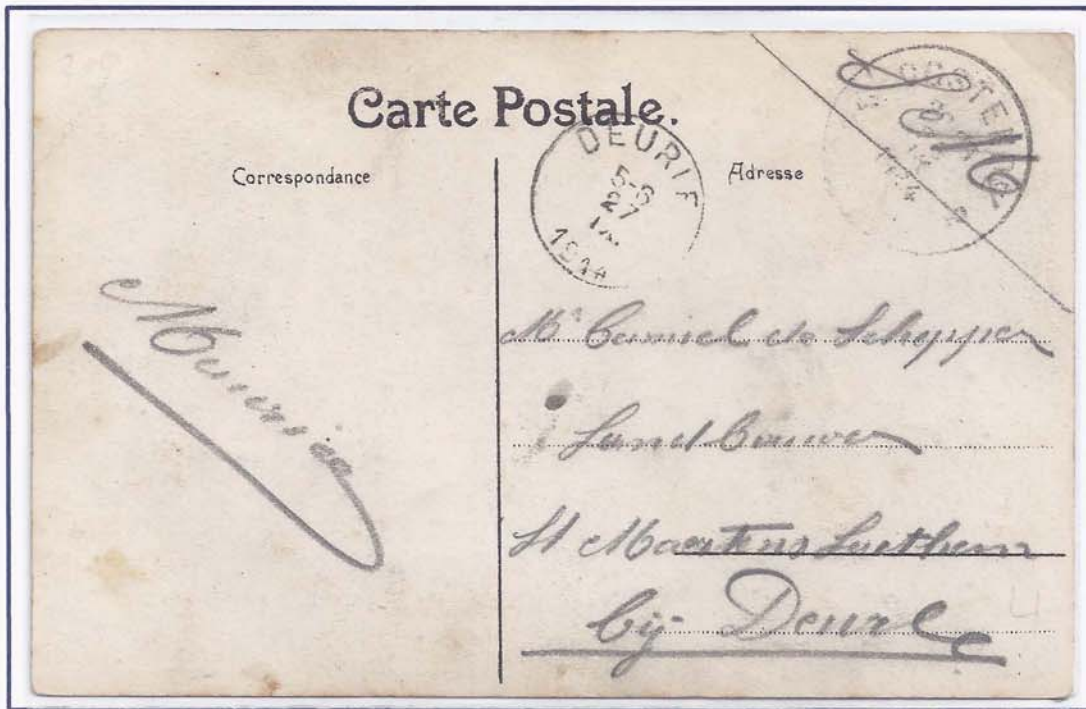 Carte Postale.
Correspondance
Adresse
DEURLE
5-6
27
1914
OOSTENDE
S M
Maurice
Mr Camiel de Schepper
Landbouwer
St Maertens Laethem
bij Deurle